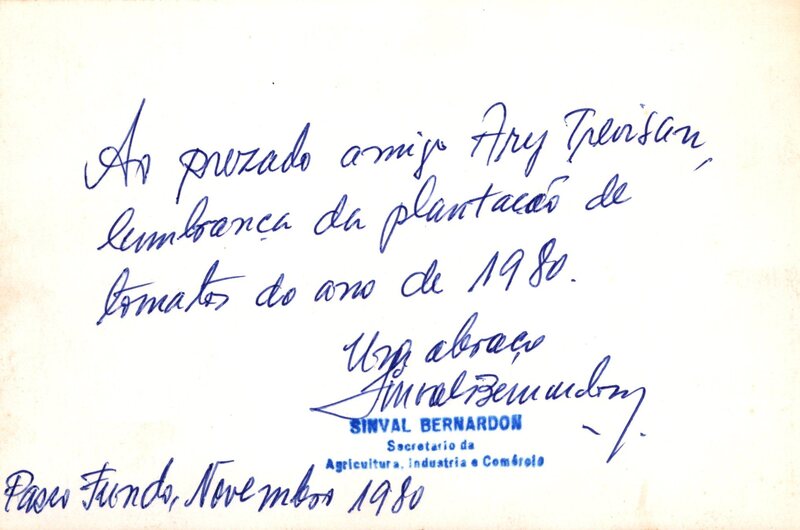 Ao prezado amigo Ary Trevisan,
lembrança da plantação de
tomates do ano de 1980.
Um abraço
Sinval Bernardon
SINVAL BERNARDON
Secretario da
Agricultura, Industria e Comércio
Passo Fundo, Novembro 1980